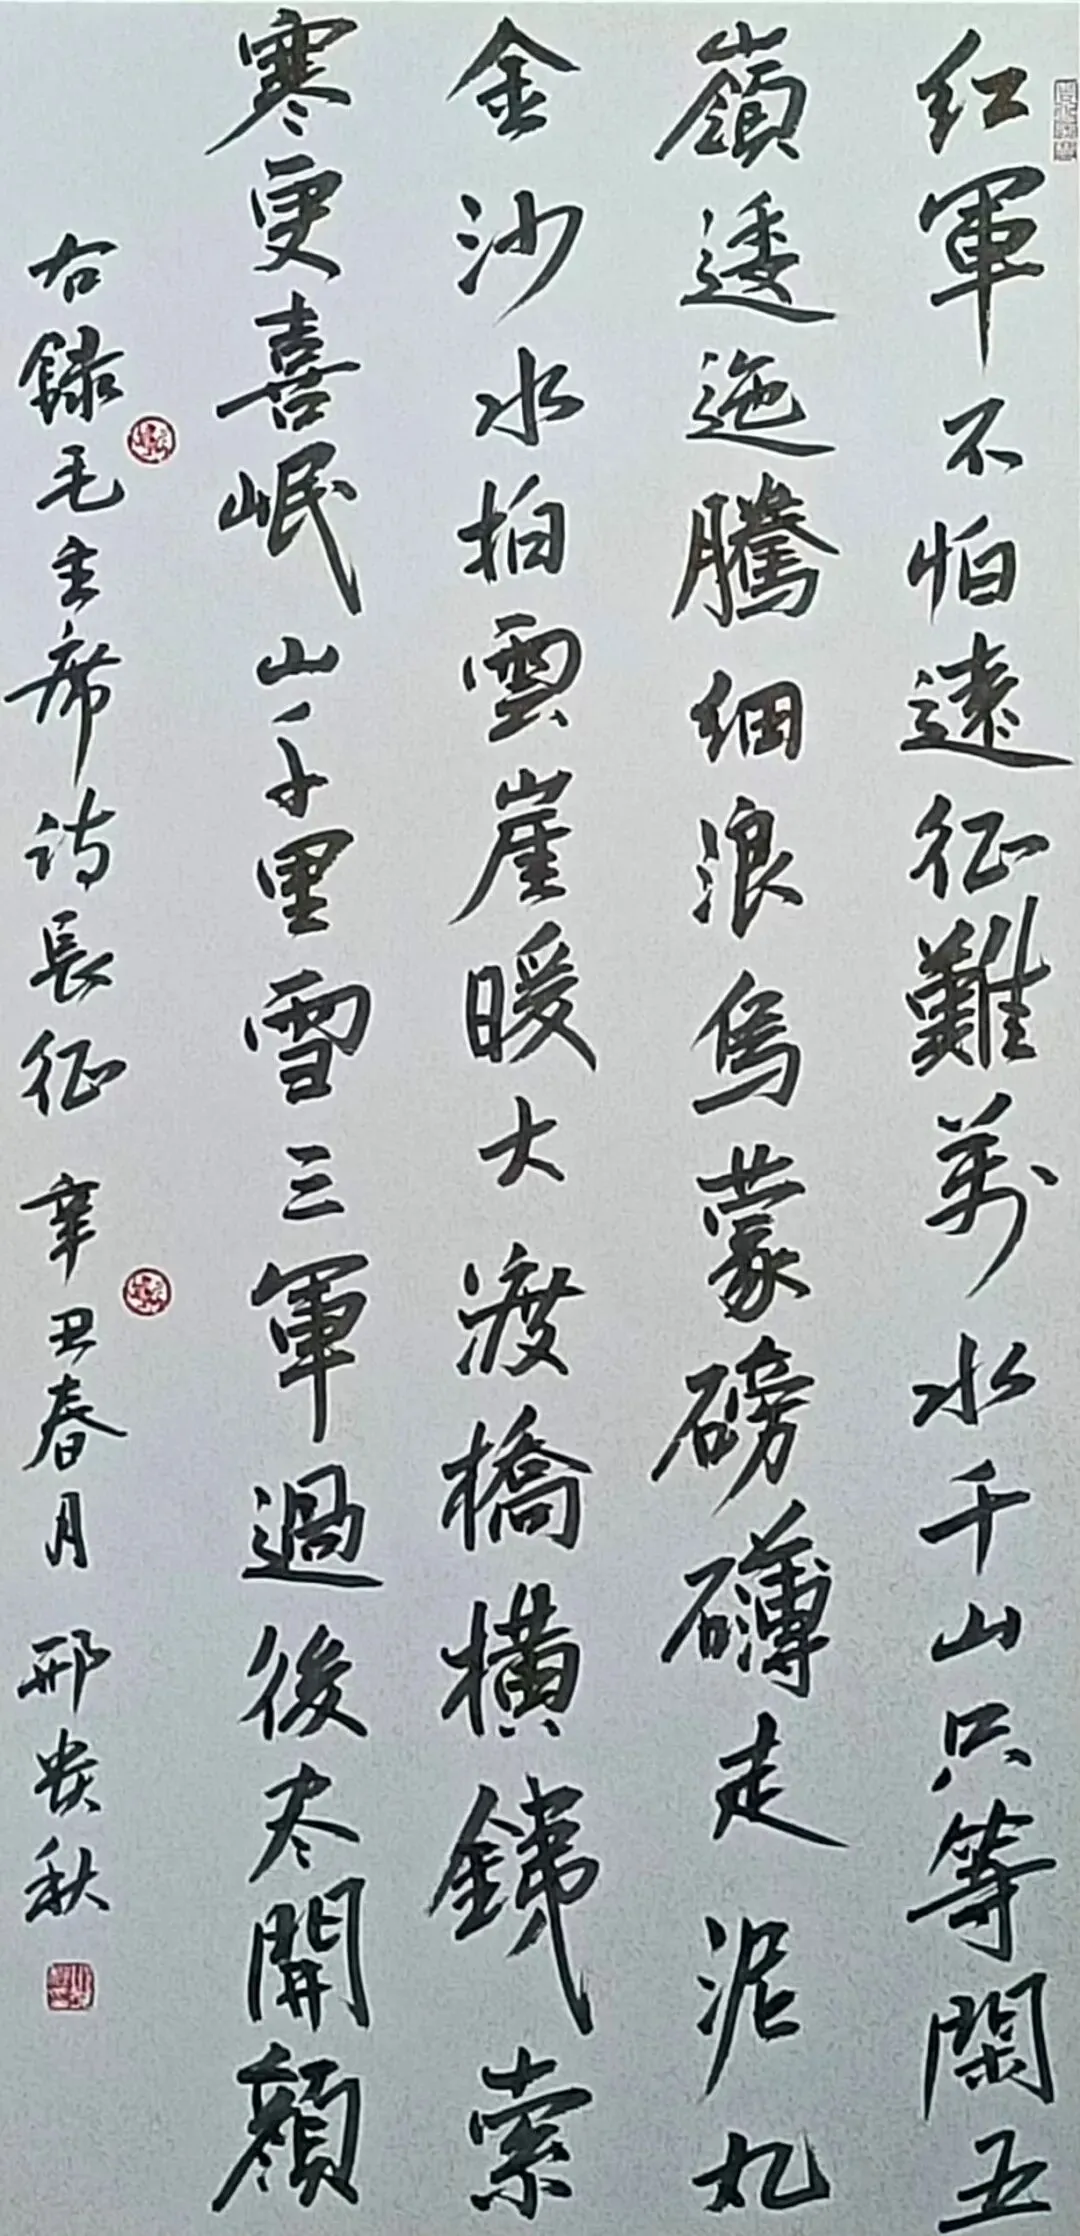 红軍不怕遠征難萬水千山只等閑五
嶺逶迤騰細浪烏蒙磅礴走泥丸
金沙水拍雲崖暖大渡橋橫鐵索
寒更喜岷山千里雪三軍過後尽開顏
右錄毛主席诗長征 辛丑春月 邢贵秋